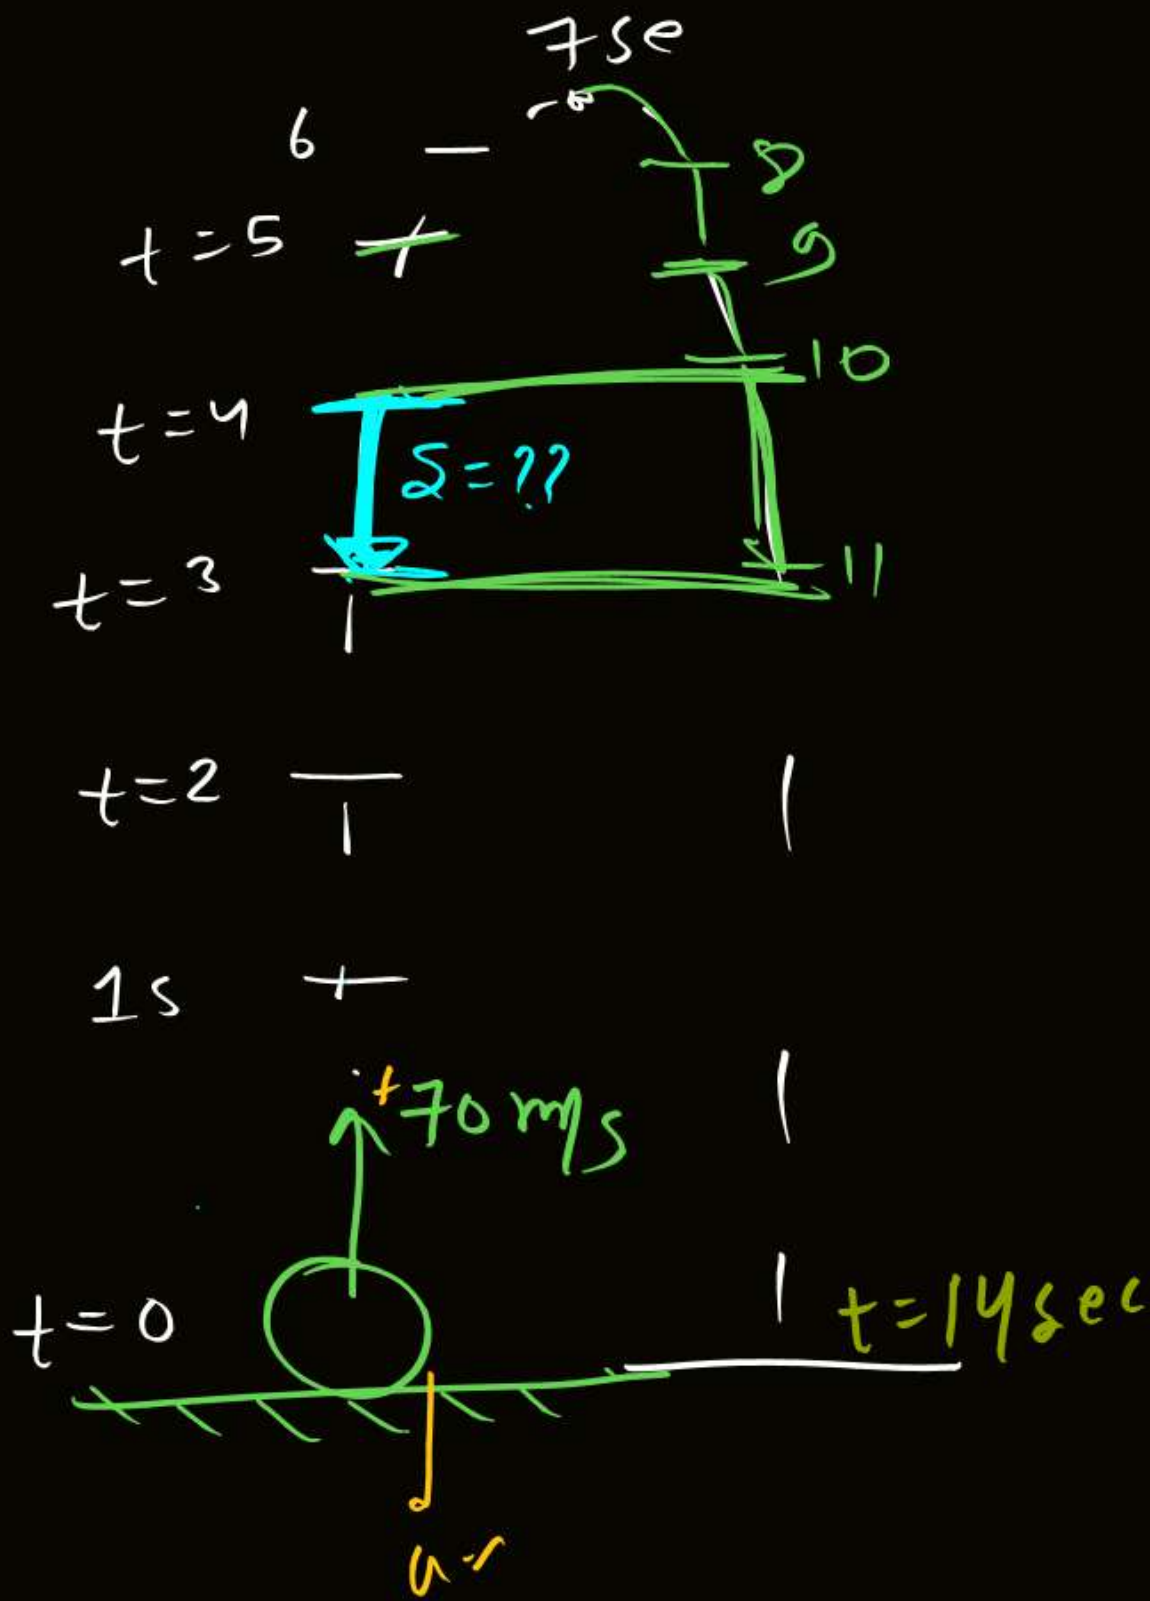 7se
6
8
t=5
9
10
t=4
S=??
t=3
11
t=2
1s
+70 m/s
t=0
t=14sec